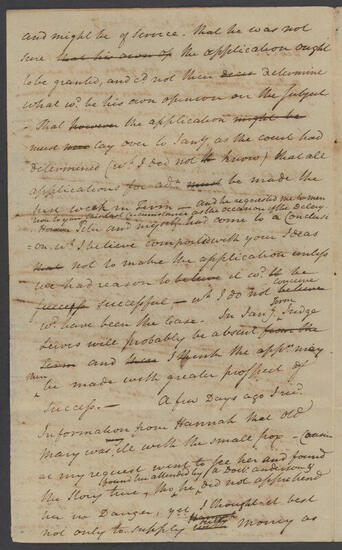 and might be of service. that he was not
sure that his own op the application ought
to be granted, and cd not then deces determine
what wd be his own openion on the subject
- That however the application might be
must now lay over to Jany, as the court had
determined (wh I did not to know) that all
applications for adn must be made the
first week in Term — and he requested me to men
tion to you the circumstance as the occasion of the delay
However John and myself had come to a Conclusi
-on wh I believe comported with your Ideas
that not to make the application unless
we had reason to believe it wd be
success successful — wh I do not believe conceive
wd have been the Case. In Jany Term Judge
Lewis will probably be absent from the
Term and I think the appn may
then be made with greater prospect of
success. — A few Days ago I recd
Information from Hannah that old
Mary was ill with the small pox — Cousin
at my request went to see her and found
the story true, tho he did not apprehend
found her attended by a Doctr Anderson &
her in Danger, yet I thought it best
not only to supply Hannah with money as